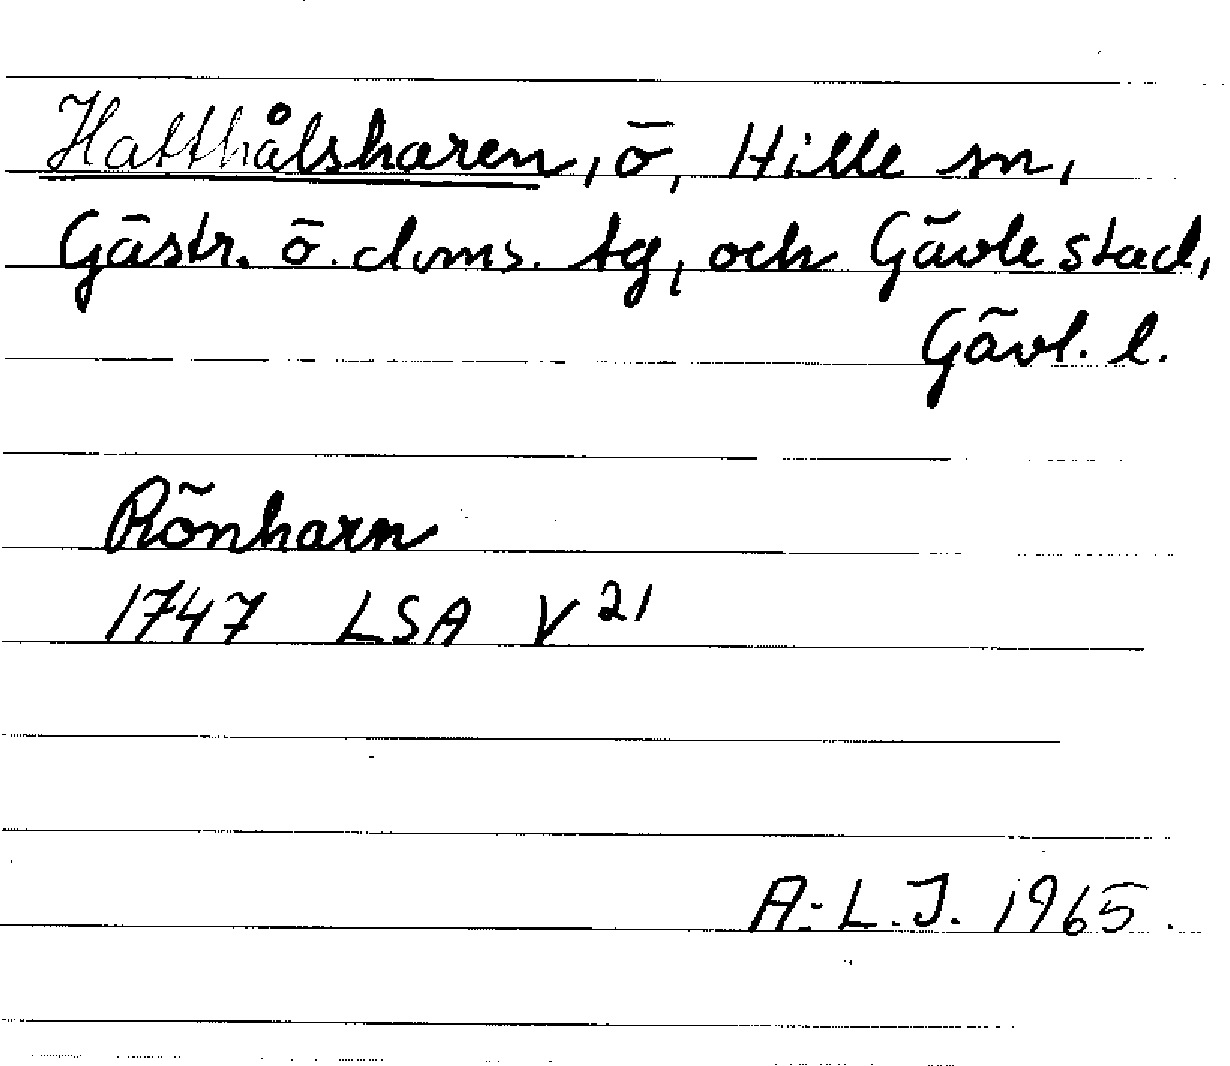 Hatthålsharen, ö, Hille sn,
Gästr. ö. doms. tg, och Gävle stad,
Gävl. l.
Rönharn
1747 LSA V 21
A-L.J. 1965.